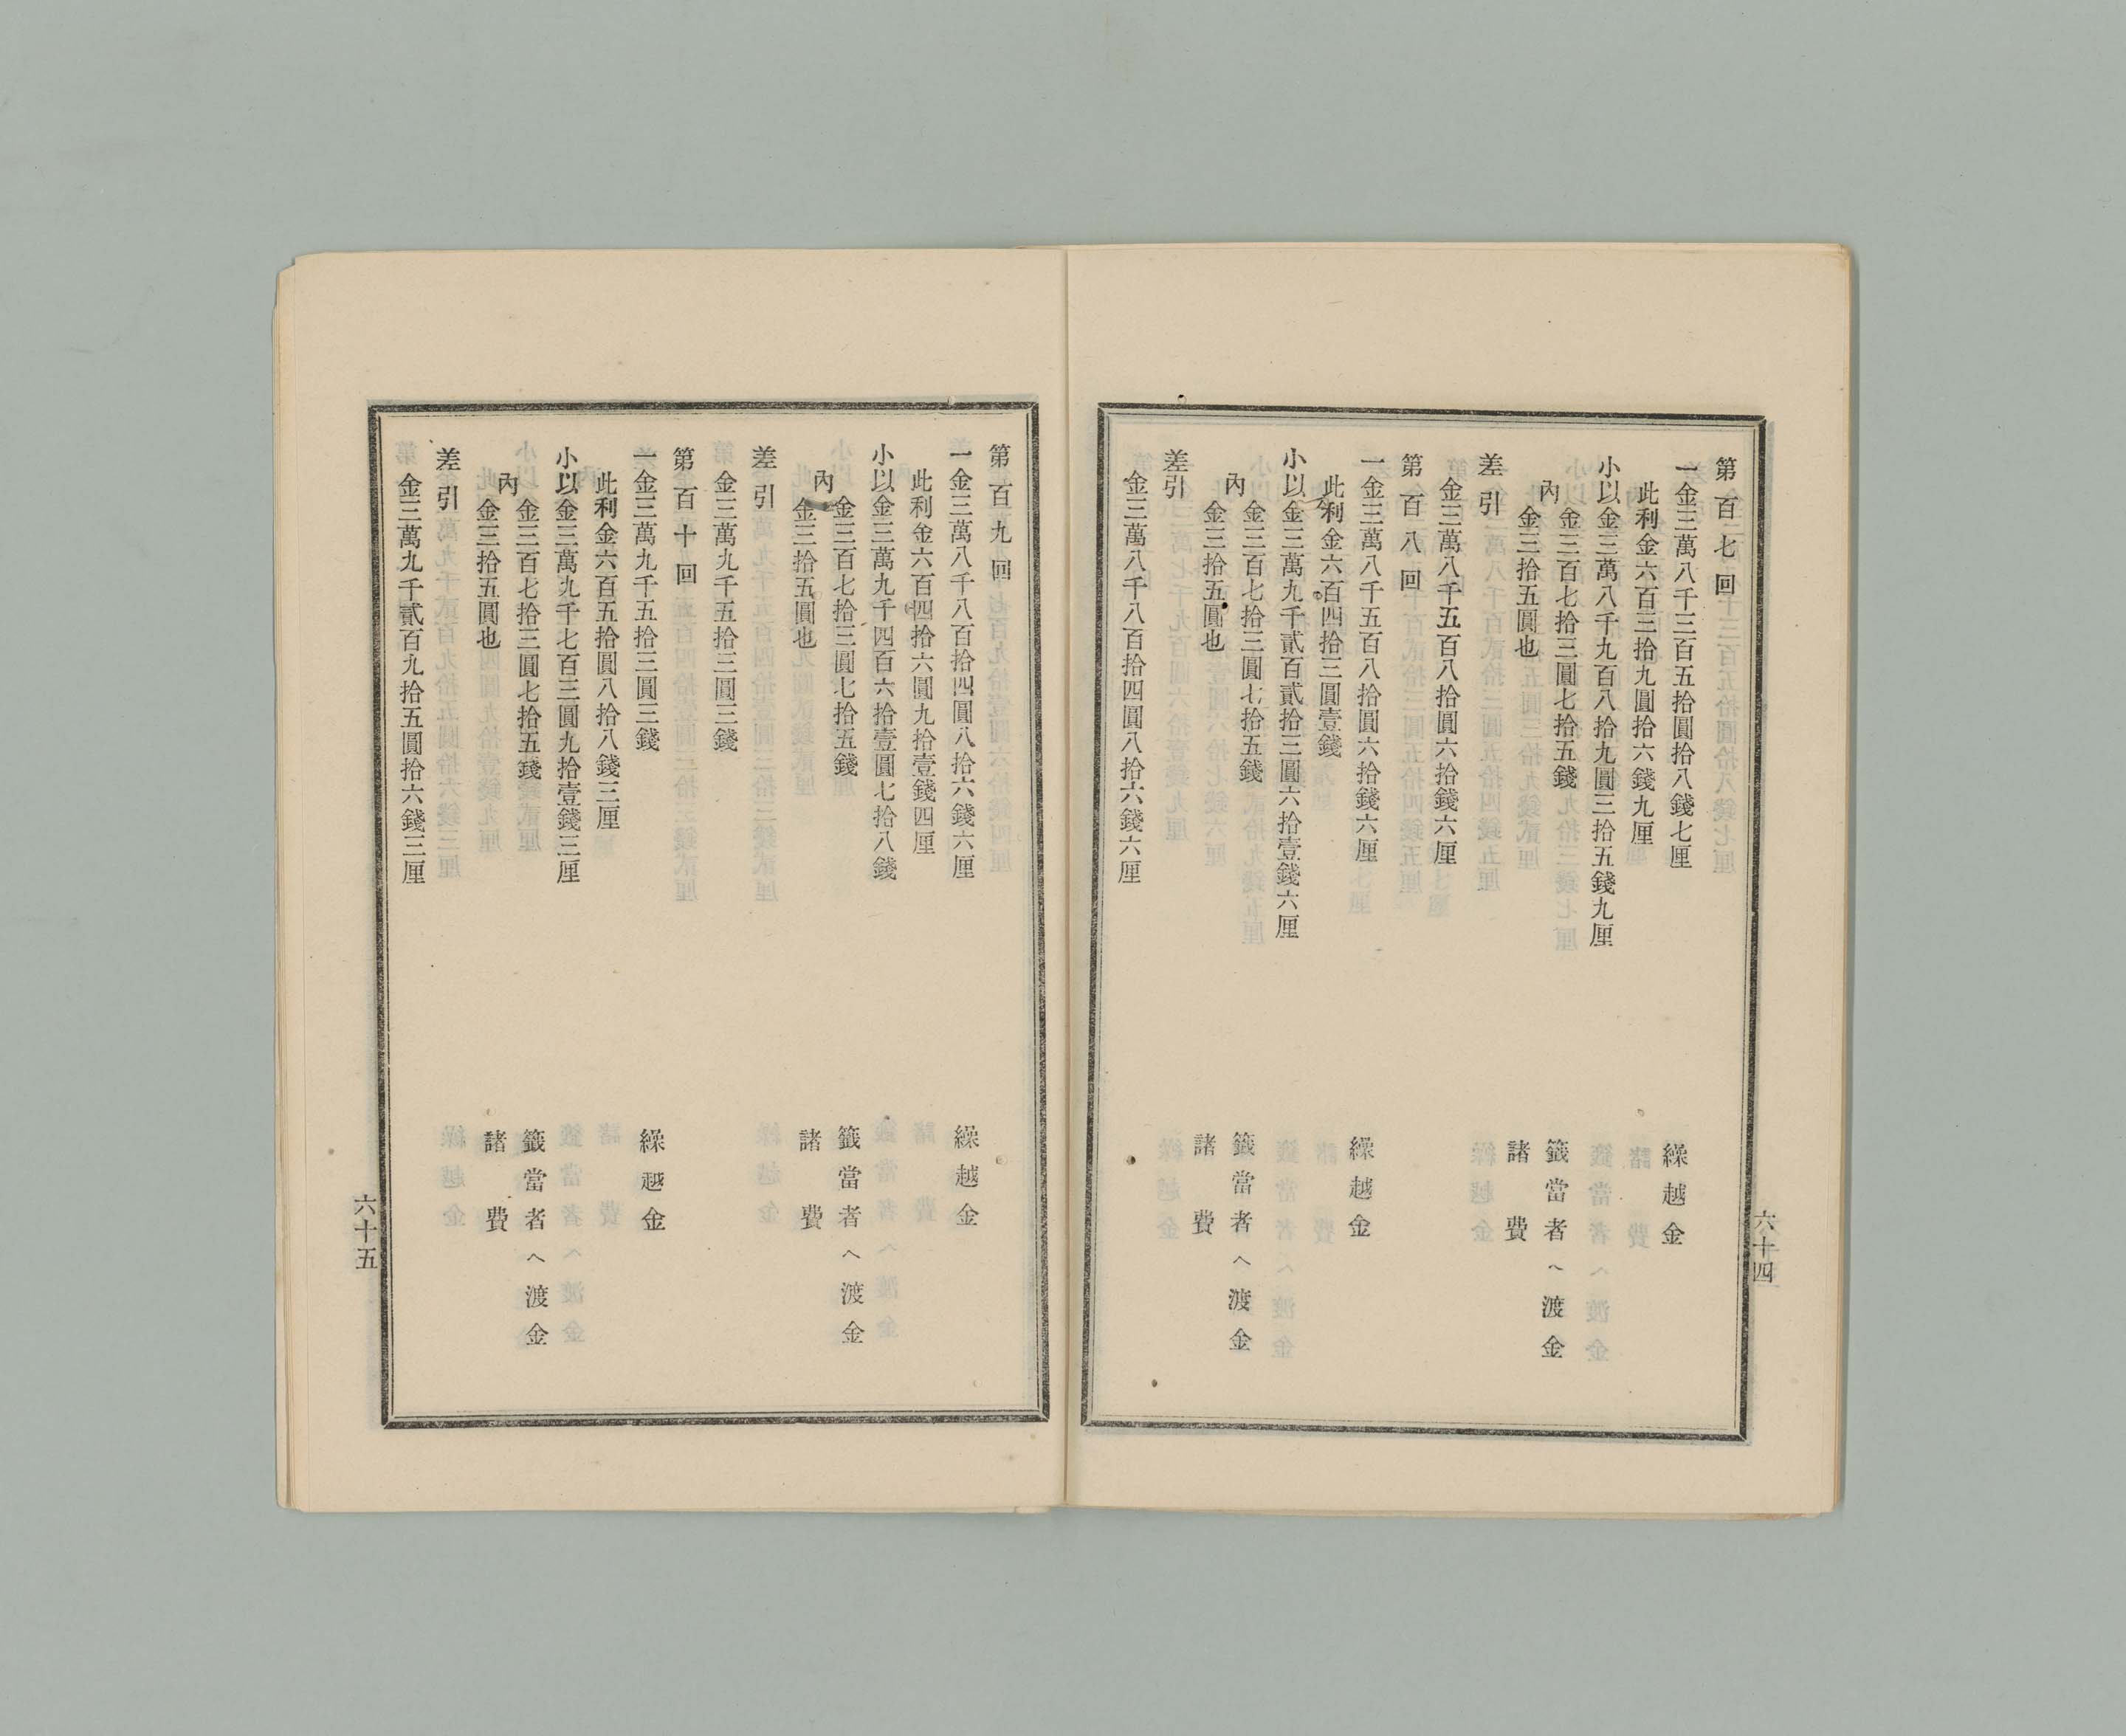 第百七回
一金三萬八千三百五拾圓拾八錢七厘　繰越金
此利金六百三拾九圓拾六錢九厘
小以金三萬八千九百八拾九圓三拾五錢九厘
內
金三百七拾三圓七拾五錢　籤當者へ渡金
金三拾五圓也　諸費
差引
金三萬八千五百八拾圓六拾錢六厘
第百八回
一金三萬八千五百八拾圓六拾錢六厘　繰越金
此利金六百四拾三圓壹錢
小以金三萬九千貳百貳拾三圓六拾壹錢六厘
內
金三百七拾三圓七拾五錢　籤當者へ渡金
金三拾五圓也　諸費
差引
金三萬八千八百拾四圓八拾六錢六厘
六十四
第百九回
一金三萬八千八百拾四圓八拾六錢六厘　繰越金
此利金六百四拾六圓九拾壹錢四厘
小以金三萬九千四百六拾壹圓七拾八錢
內
金三百七拾三圓七拾五錢　籤當者へ渡金
金三拾五圓也　諸費
差引
金三萬九千五拾三圓三錢
第百十回
一金三萬九千五拾三圓三錢　繰越金
此利金六百五拾圓八拾八錢三厘
小以金三萬九千七百三圓九拾壹錢三厘
內
金三百七拾三圓七拾五錢　籤當者へ渡金
金三拾五圓也　諸費
差引
金三萬九千貳百九拾五圓拾六錢三厘
六十五